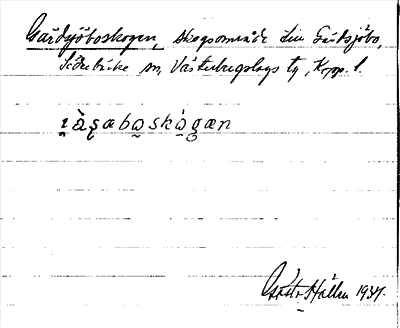 Gärdsjöboskogen, skogsområde till Gärdsjöbo,
Söderbärke sn, Västerbergslags tg, Kopp. l.
ɪ̀äʂabωskὼgæn
Gösta Hallén 1937.